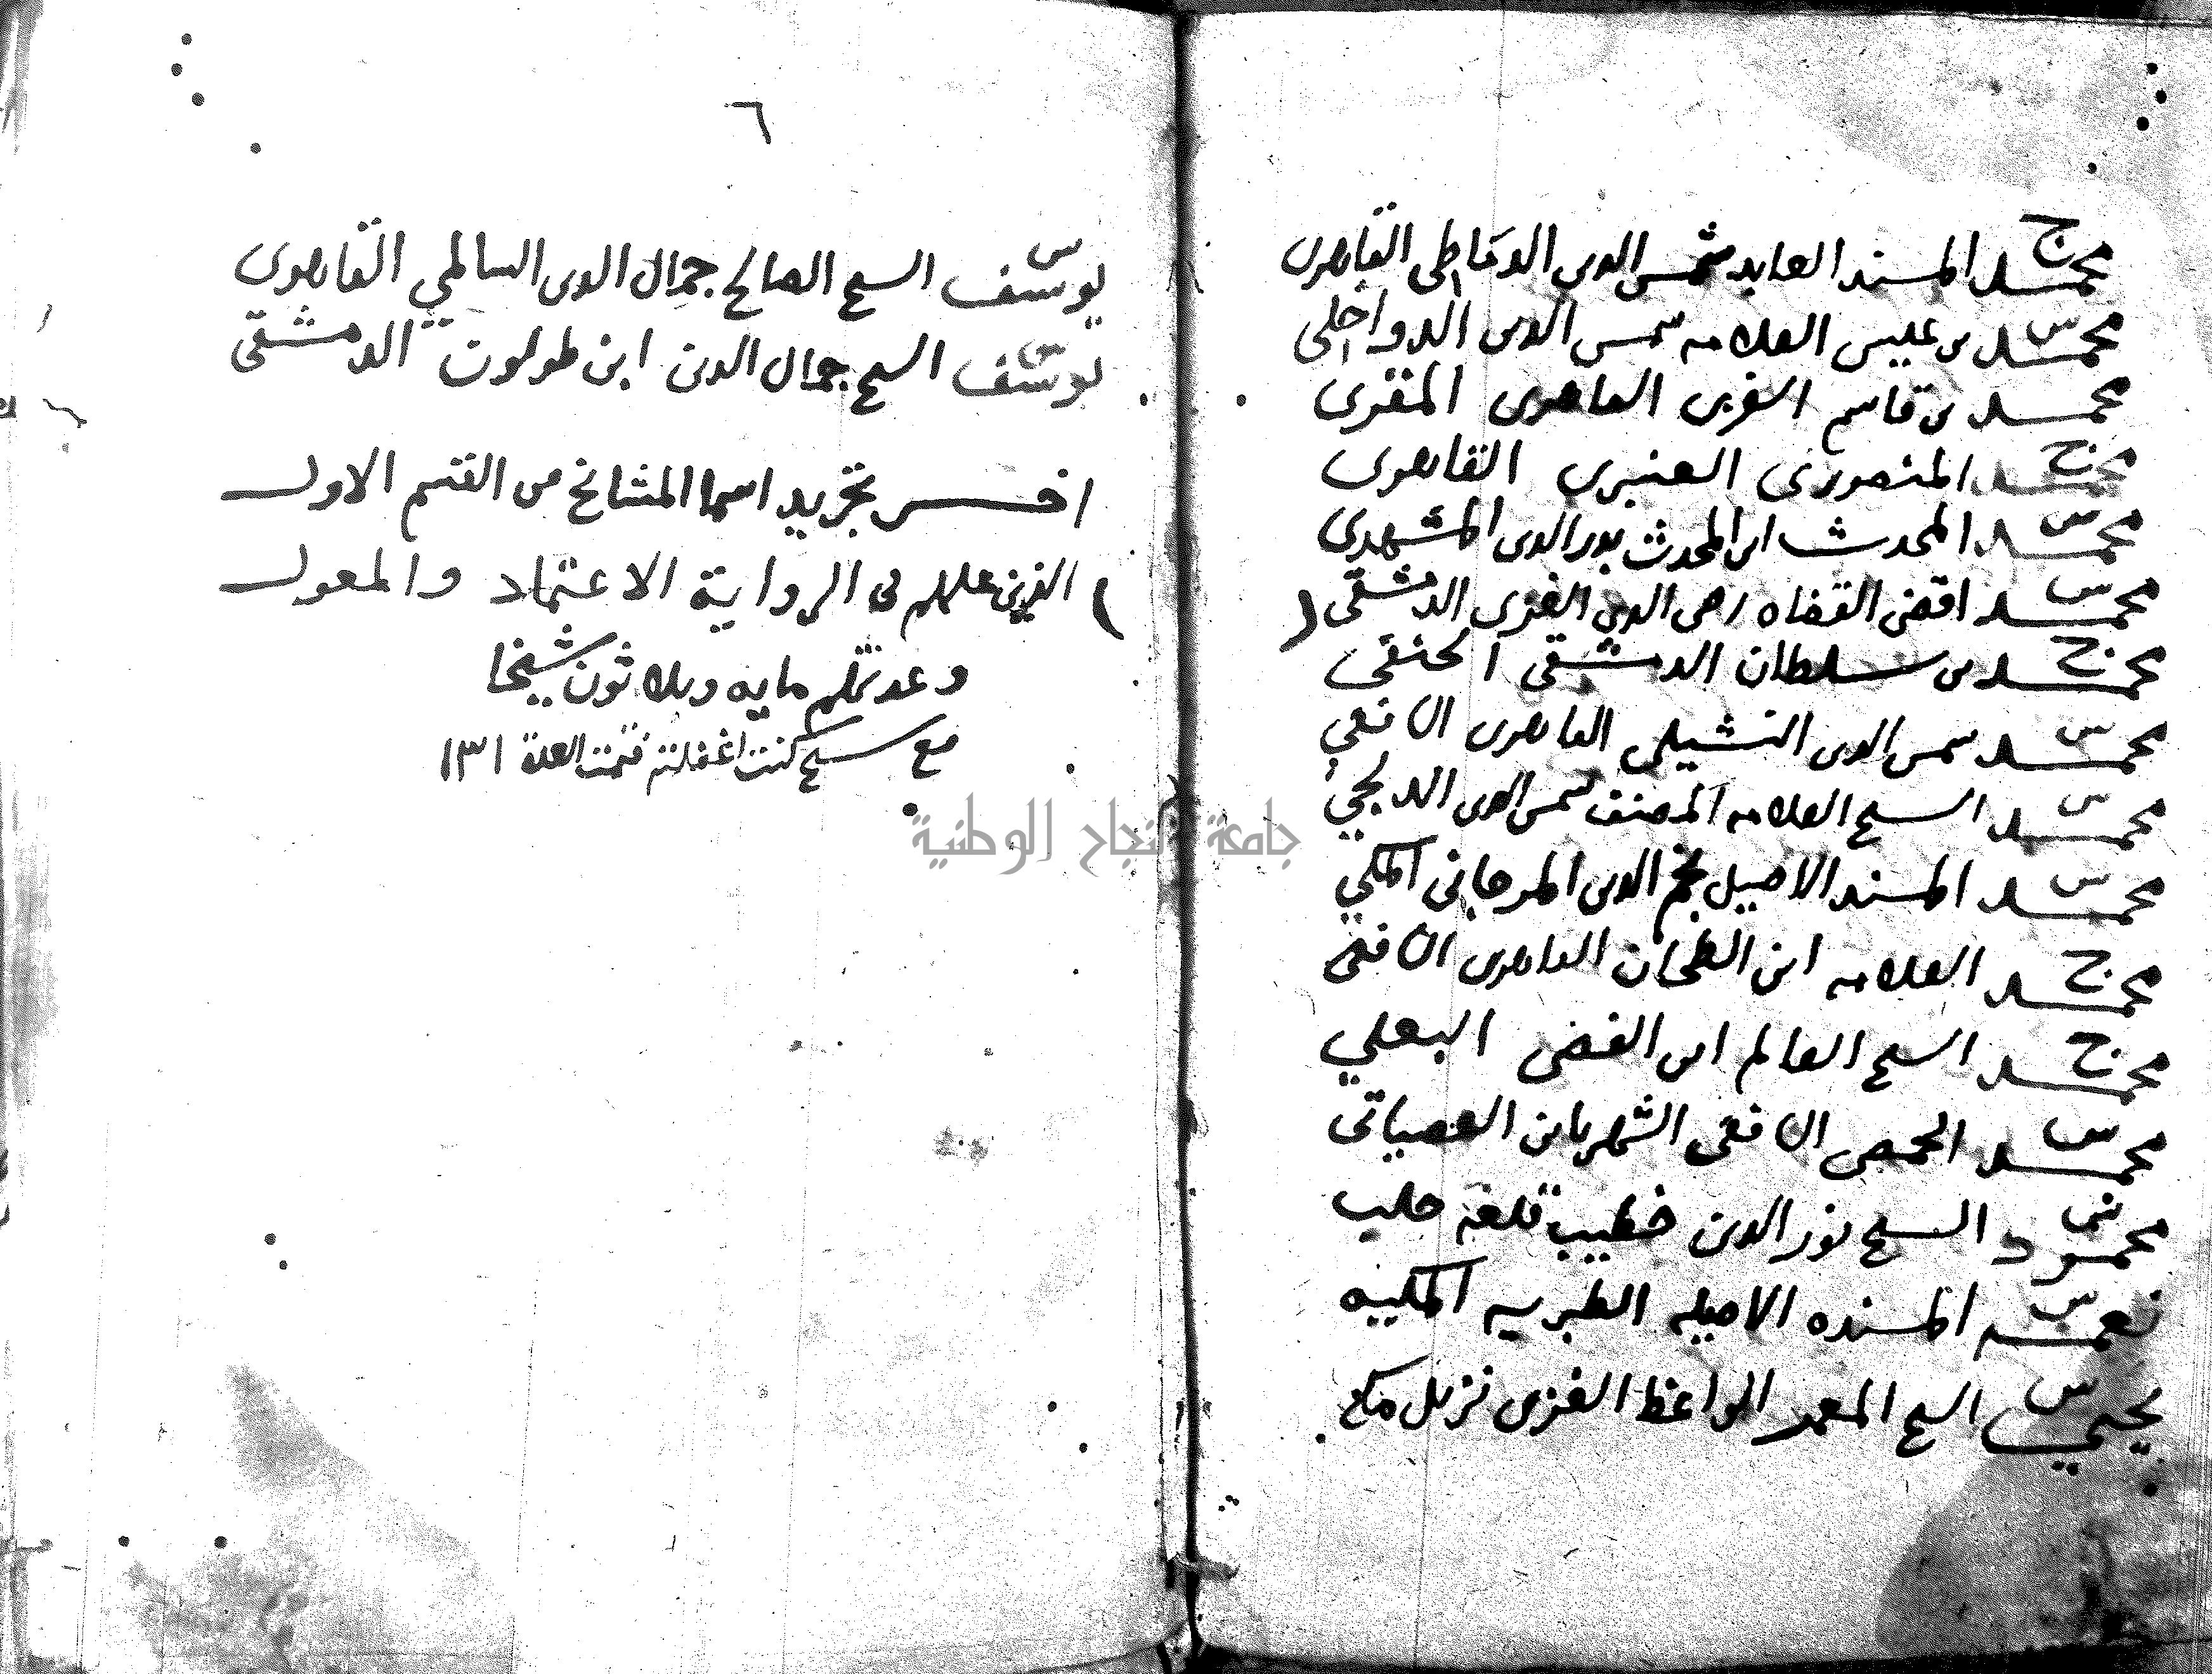 محمد المسند العابد شمس الدين الدمياطي القاهري
محمد بن عليس العلامه شمس الدين الدواخلي
محمد بن قاسم الغزي القاهري المقري
محمد المنصوري العنبري القاهري
محمد المحدث ابن المحدث بدر الدين المشهدي
محمد اقضى القضاه رضي الدين الغزي الدمشقي
محمد بن سلطان الدمشقي الحنفي
محمد شمس الدين النشيلي القاهري الشافعي
محمد الشيخ العلامه المصنف شمس الدين الدلجي
محمد المسند الاصيل نجم الدين المرجاني المكي
محمد العلامه ابن الطحان القاهري الشافعي
محمد الشيخ العالم ابن الفصي البعلي
محمد الحمصي الشافعي الشهير بابن العصياتي
محمود الشيخ نور الدين خطيب قلعة حلب
نعمه المسنده الاصيله الطبريه المكيه
يحيى الشيخ المعمر الواعظ الغزي نزيل مكة
٦
يوسف الشيخ الصالح جمال الدين السالمي القاهري
يوسف الشيخ جمال الدين ابن طولون الدمشقي
اخر تجريد اسما المشائخ من القسم الاول
الذين عليهم في الرواية الاعتماد والمعول
وعدتهم مايه وثلاثون شيخا
مع شيخ كنت اغفلته فتمت العدة ١٣١
جامعة النجاح الوطنية